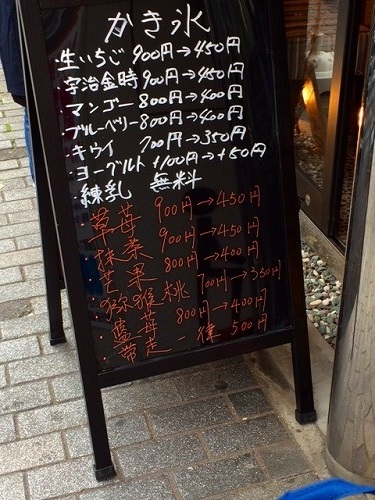 かき氷
・生いちご 900円→450円
・宇治金時 900円→450円
・マンゴー 800円→400円
・ブルーベリー 800円→400円
・キウイ 700円→350円
・ヨーグルト +100円→+50円
・練乳 無料
・草苺 900円→450円
・抹茶 900円→450円
・芒果 800円→400円
・猕猴桃 700円→350円
・藍苺 800円→400円
・帯走一律 500円